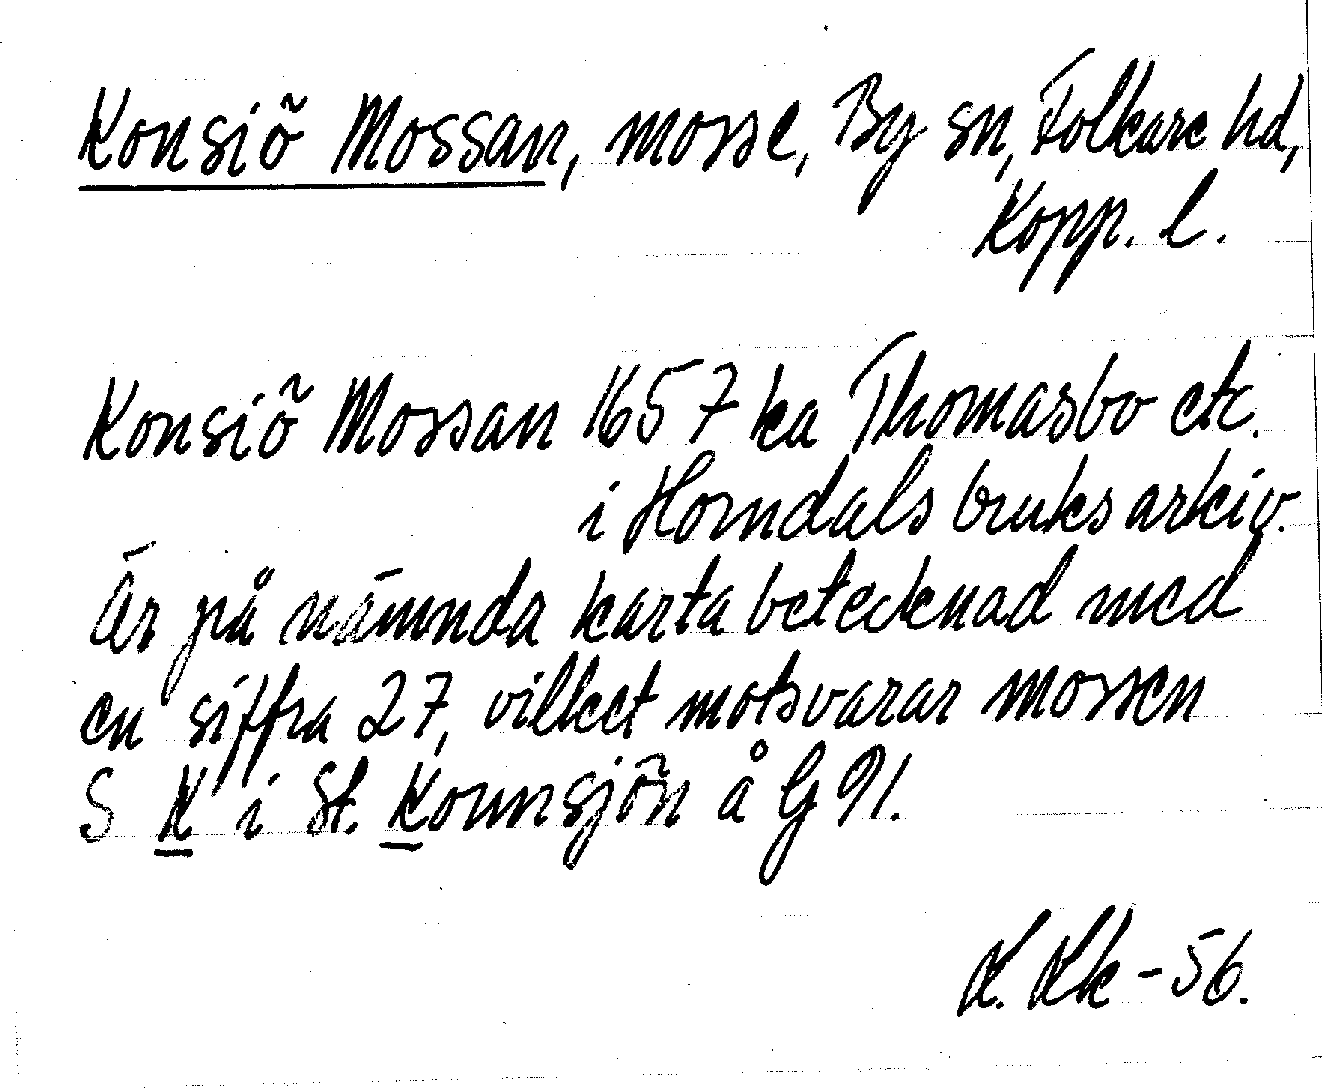 Konsiö Mossan, mosse, By sn, Folkare hd,
Kopp. l.
Konsiö Mossan 1657 ka Thomasbo etc.
i Horndals bruksarkiv.
Är på nämnda karta betecknad med
en siffra 27, vilket motsvarar mossen
S K i St. Konnsjön å G 91.
K. Lk-56.